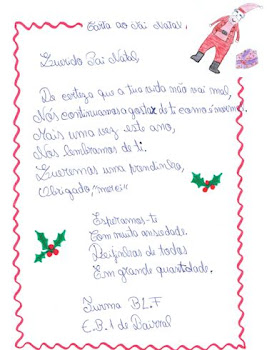 Carta ao Pai Natal,
Querido Pai Natal,
De certeza que a tua vida não vai mal,
Nós continuamos a gostar de ti como é normal.
Mais uma vez este ano,
Nos lembramos de ti.
Queremos uma prendinha,
Obrigado, "merci"
Esperamos-te
Com muita ansiedade.
Beijinhos de todos
Em grande quantidade.
Turma BL.F
E.B.1 de Bairral